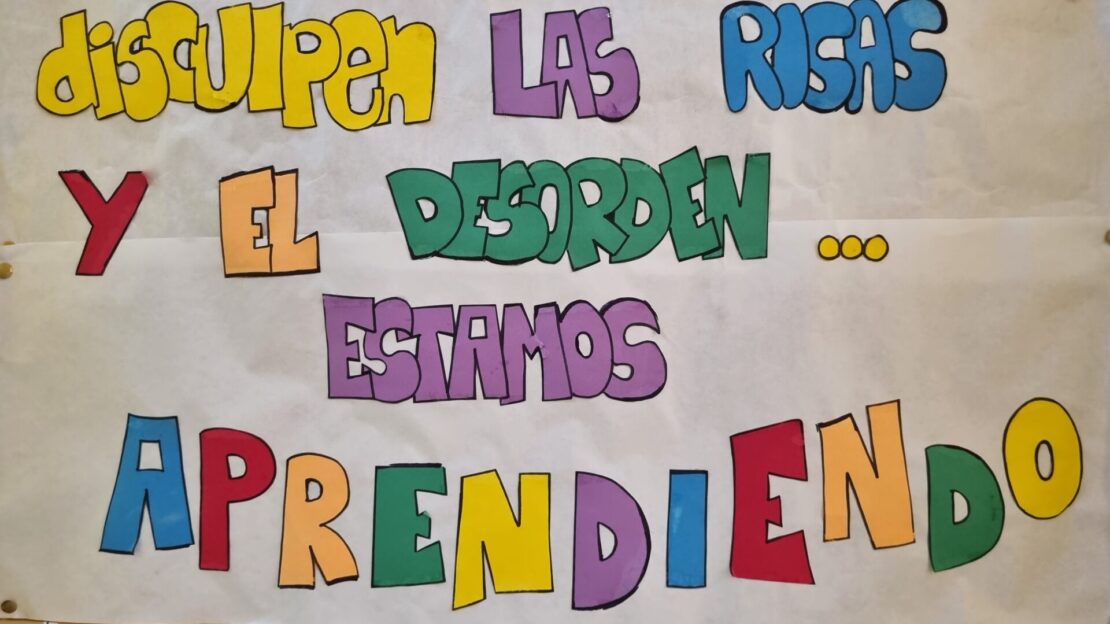 disculpen LAS RISAS
Y EL DESORDEN ...
ESTAMOS
APRENDIENDO